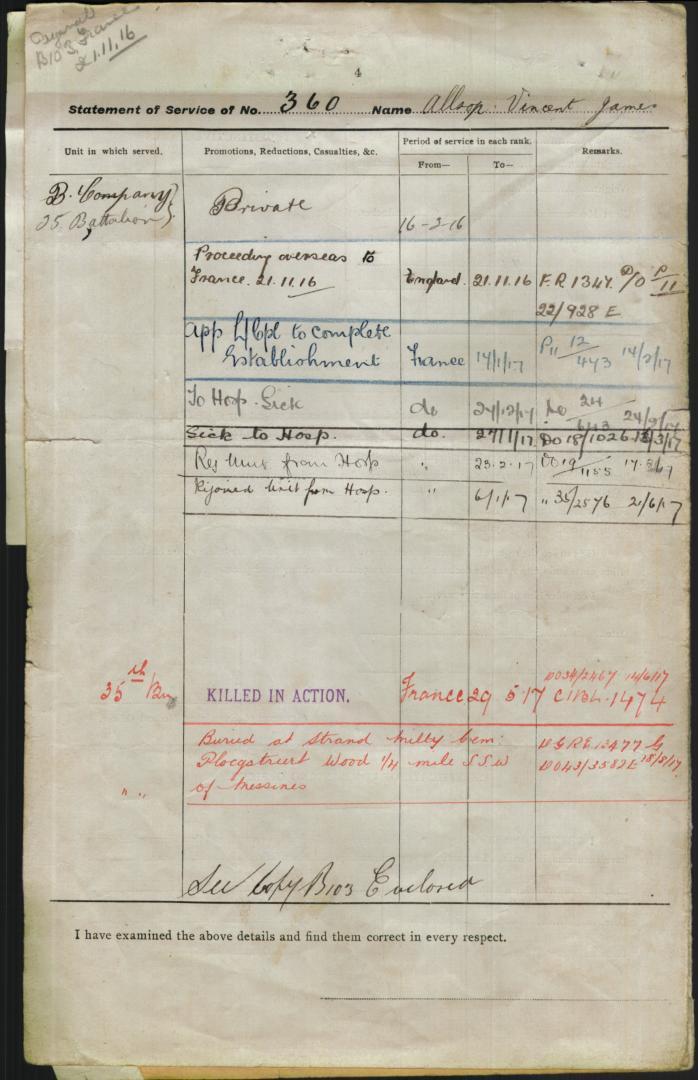 Original
B103 France
21.11.16
4
Statement of Service of No. 360 Name Allsop Vincent James
Unit in which served. Promotions, Reductions, Casualties, &c. Period of service in each rank. Remarks.
From— To—
B. Company
35 Battalion
Private
16-2-16
Proceeding overseas to
France. 21.11.16 England. 21.11.16 F.R 1347 P/11
22/928 E
App L/Cpl to complete
Establishment France 14/1/17 P11 12/443 14/2/17
To Hosp. Sick do 24/12/17 DO 24
Sick to Hosp. do. 27/1/17 DO 18/1026 /3/17
Rej Unit from Hosp " 23.2.17 DO 19/1155
Rejoined Unit from Hosp. " 6/1/17 " 35/2576 21/6/17
DO34/2467 14/6/17
35th Bn KILLED IN ACTION. France 29 5 17 C1BL.1474
Buried at Strand Milty Cem:
Ploegsteert Wood 1/4 mile SSW DO43/3582E 18/8/17
" " of Messines
See Copy B103 Enclosed
I have examined the above details and find them correct in every respect.